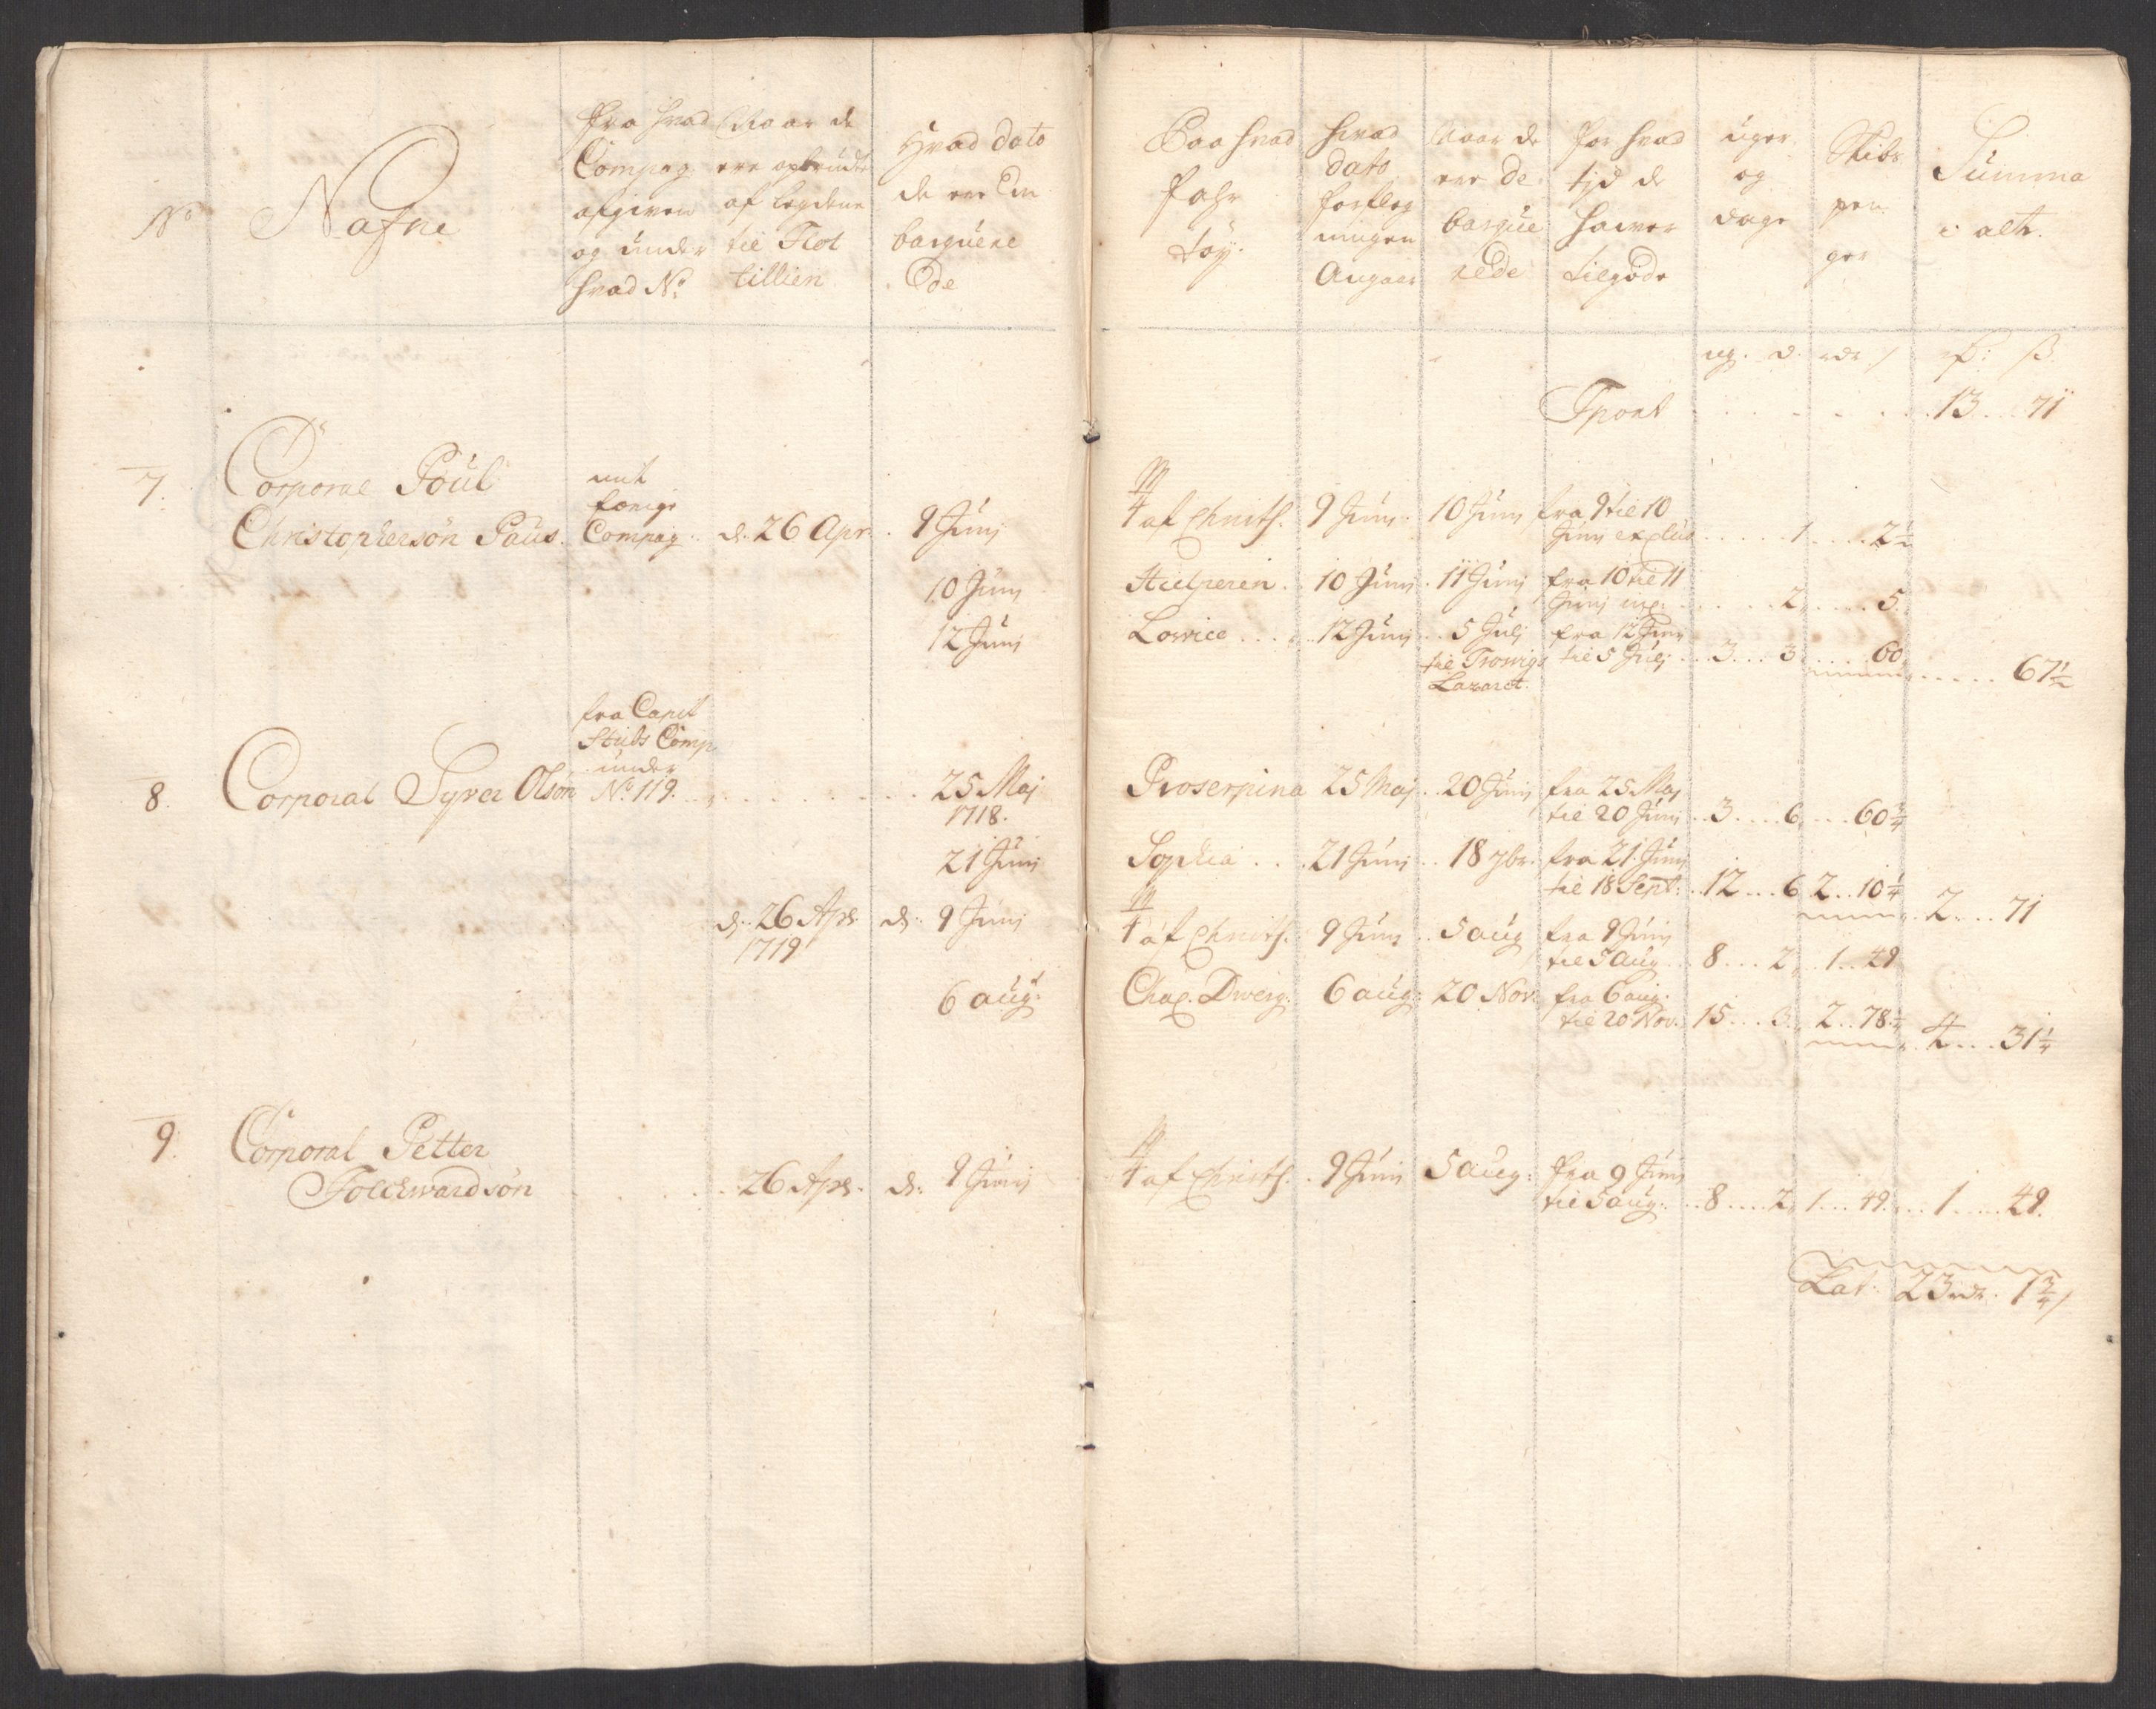 No
Nafne
fra hvad
Compag
afgiven
og under
hvad No
Naar de
ere opbrudte
af legdene
til Flot
tillien
Hvad dato
de ere Em
barquere
de
Paa hvad
fahr
töy.
hvad
dato
forpleg
ningen
Angaar
Naar de
ere de
barque
rede
for hvad
tjd de
hawer
tilgode
uger
og
dage
Skibs
pen
ger
Summa
i alt.
ug. d. rdr ß
rdr: ß
Tport . . . . . . 13 . . 71
7. Corporal Poul
Christophersön Paus.
mit
forige
Compag. d. 26 Apr. 9 Junj
4 af Christs. 9 Junj 10 Junj fra 9 til 10
Junj exclus . . . . 1 . . . . 2 1/2
10 Junj
Hielperen. 10 Junj. 11 Junj fra 10 til 11
Junj incl. . . . . 2 . . . . 5.
12 Junj
Lovice . . . . 12 Junj . . 5 Julj fra 12 Junj
til Tronigs
Lazaret.
til 5 Julj . . 3 . . . 3 . . . . 60 . . . . . 67 1/2
8. Corporal Syver Olsön
fra Capit
Stubs Comp
under
No. 119. . . . . . . . . 25 Maj
1718.
Proserpina 25 Maj . . 20 Junj fra 25 Maj
til 20 Junj . . 3 . . . 6 . . . 60 3/4
21 Junj
Sophia . . . 21 Junj . . 18 7br. fra 21. Junj
til 18 Sept: . . 12 . . . 6 2 . . 10 1/4 2 . . . 71
d. 26 Apr.
1719
d. 9 Junj
4 af Christs. 9 Junj . . 5 aug fra 9 Junj
til 5 Aug . . . 8 . . . 2 . . 1 . . 49
6 aug:
Chap. Dverg. 6 aug: 20 Nov. fra 6 aug:
til 20 Nov. 15 . . . 3 . . 2 . . 78 1/4 4 . . . 31 1/4
9. Corporal Petter
Tolckwardsön . . . . . 26 Apr. d. 9 Junj
4 af Christs. . 9 Junj 5 aug: fra 9 Junj
til 5 aug: . . 8 . . . . 2 1 . . . 49 . . . 1 . . . . 49.
Lat: 23 rdr. 1 3/4 ß